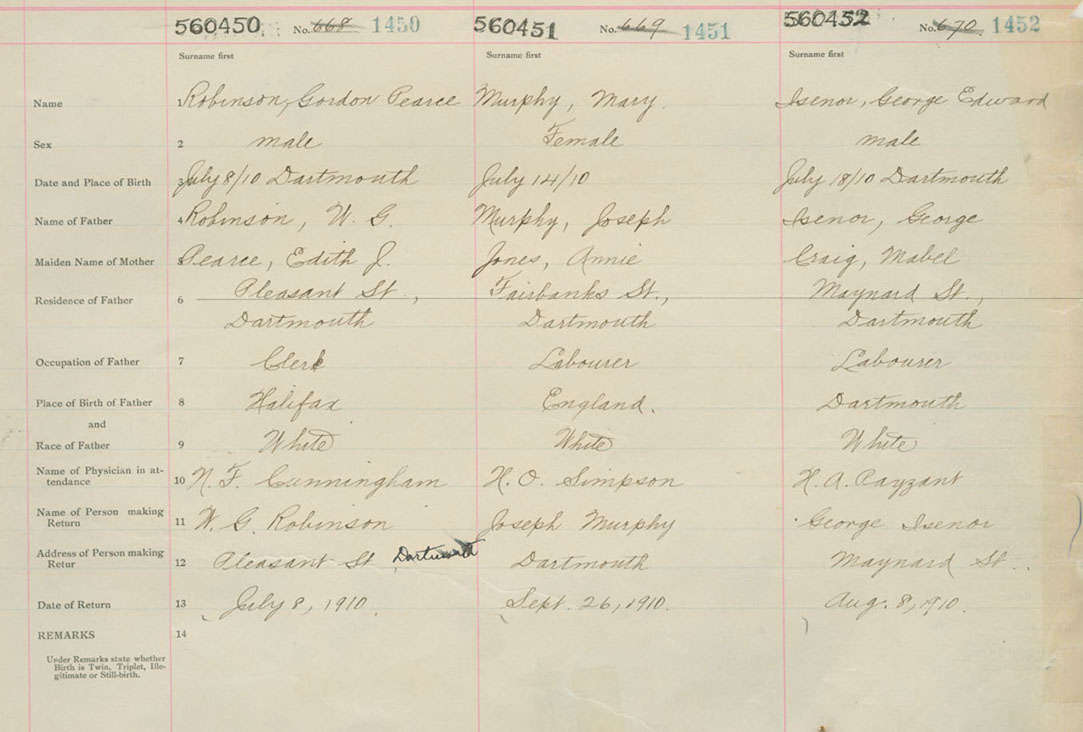 560450 No. 668 1450 560451 No. 669 1451 560452 No. 670 1452
Surname first Surname first Surname first
Name 1 Robinson, Gordon Pearce Murphy, Mary. Isenor, George Edward
Sex 2 male Female male
Date and Place of Birth 3 July 8/10 Dartmouth July 14/10 July 18/10 Dartmouth
Name of Father 4 Robinson, W. G. Murphy, Joseph Isenor, George
Maiden Name of Mother 5 Pearce, Edith J. Jones, Annie Craig, Mabel
Residence of Father 6 Pleasant St., Fairbanks St., Maynard St.,
Dartmouth Dartmouth Dartmouth
Occupation of Father 7 Clerk Labourer Labourer
Place of Birth of Father 8 Halifax England. Dartmouth
and
Race of Father 9 White White White
Name of Physician in at-
tendance 10 N. F. Cunningham H. O. Simpson H. A. Payzant
Name of Person making
Return 11 W. G. Robinson Joseph Murphy George Isenor.
Address of Person making
Retur 12 Pleasant St Dartmouth Dartmouth Maynard St..
Date of Return 13 July 8, 1910. Sept. 26, 1910. Aug. 8, 1910.
REMARKS 14
Under Remarks state whether
Birth is Twin, Triplet, Ille-
gitimate or Still-birth.